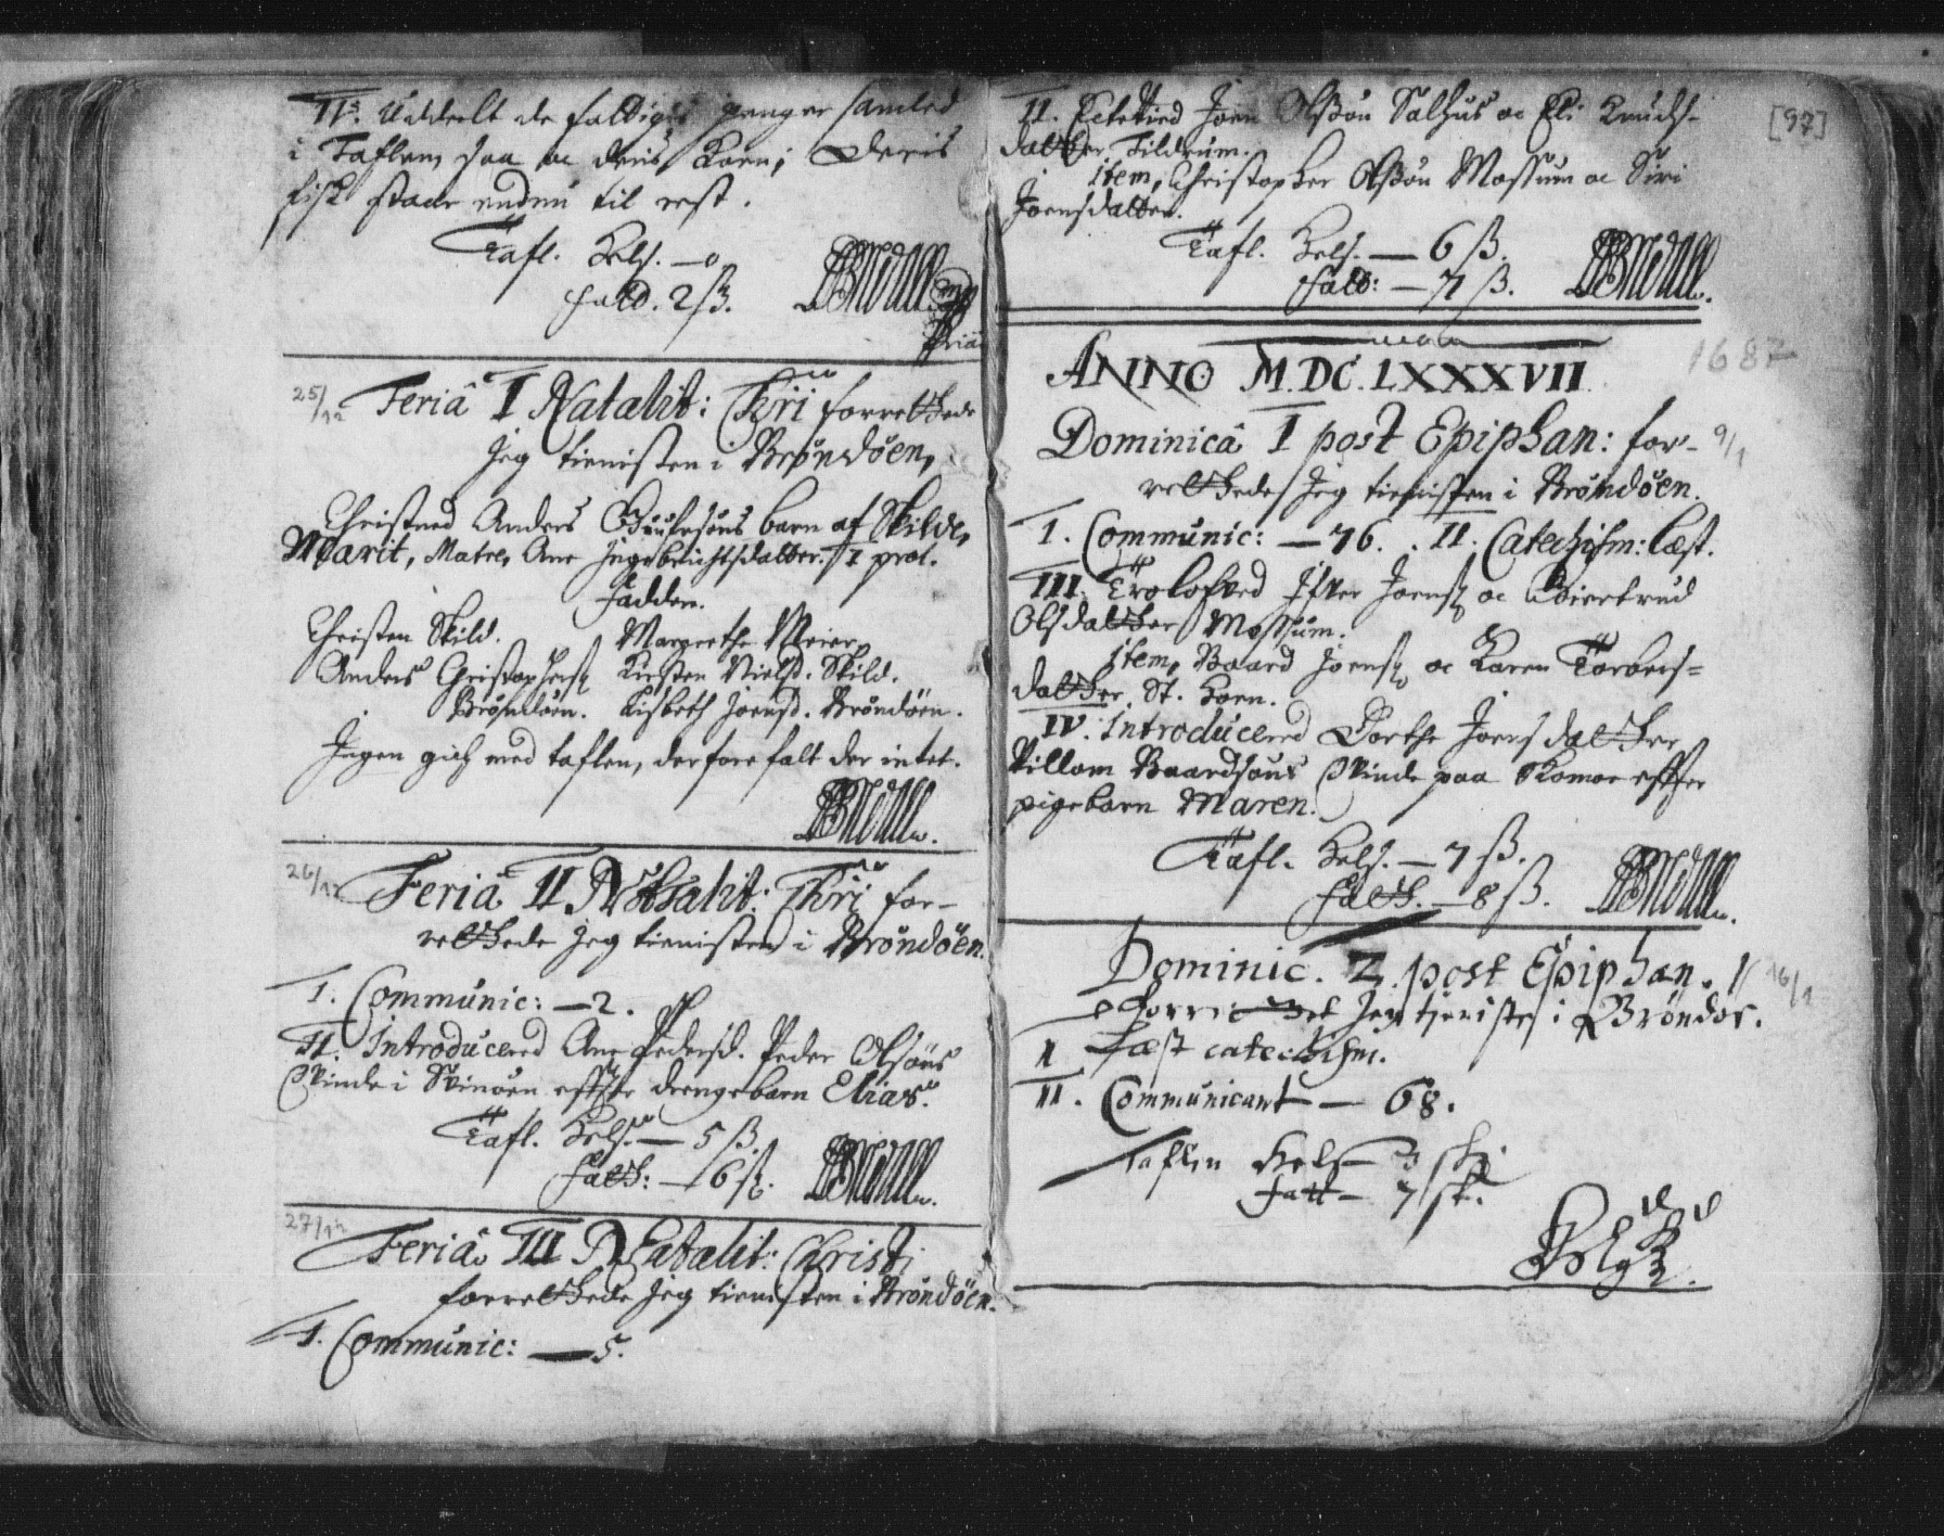 IV. Uddeelt de fattiges penger samled
i Taflen, saa oc deris Korn; Deris
fisk staar endnu til rest.
Tafl. Helf. — 0
fatt. 2 ß.
25/12 Feriâ I Natalit: Chri forrettede
Jeg tienisten i Brøndøen,
Christned Anders barn af Skilde,
Marit, Matre, Ane Ingebrichtsdatter. I prot.
fadder.
Christen Skild. Margrethe Meier,
Anders Christophersß Kirsten Nielsd. Skild.
Brøndøen. Lisbeth Joensd. Brøndöen.
Ingen gich med taflen, derfore falt der intet.
26/12 Feriâ II Natalit: Chri for-
rettede Jeg tienisten i Brøndöen.
I. Communic: — 2.
II. Introducered Ane Pedersd. Peder Olsöns
Qvinde i effter drengebarn Elias.
Tafl. Helf. — 5 ß.
fatt: — 6 ß.
27/12 Feriâ III Natalit: Christi
forrettede Jeg tienisten i Bröndöen.
I. Communic: — 5.
[97]
II. Ectevied Joen Olßøn Salhus oc Eli Knuds-
datter Tildrum.
item, Christopher Olßøn Mossum oc Siri
Joensdatter.
Tafl. Helf. — 6 ß.
fatt: — 7 ß.
ANNO M.DC.LXXXVII 1687
Dominicâ I post Epiphan: for- 9/1
rettede Jeg tienisten i Brøndöen.
I. Communic: — 76. II. Catechism: læst.
III. Trolofved Ifver Joensß oc Giertrud
Olsdatter Mossum.
item, Baard Joensß oc Karen Torbers=
datter, St. Horn.
IV. Introducered Dorthe Joensdatter
Villom Baardsöns Qvinde paa effter
pigebarn Maren.
Tafl. Helf. — 7 ß.
fatt. — 8 ß.
Dominic. 2. post Epiphan. 16/1
Forrettet Jeg tjeniste i Bröndöe.
I Læst catechism.
II. Communicant — 68.
Taflen Helf — 3 sk.
fatt — 7 sk.